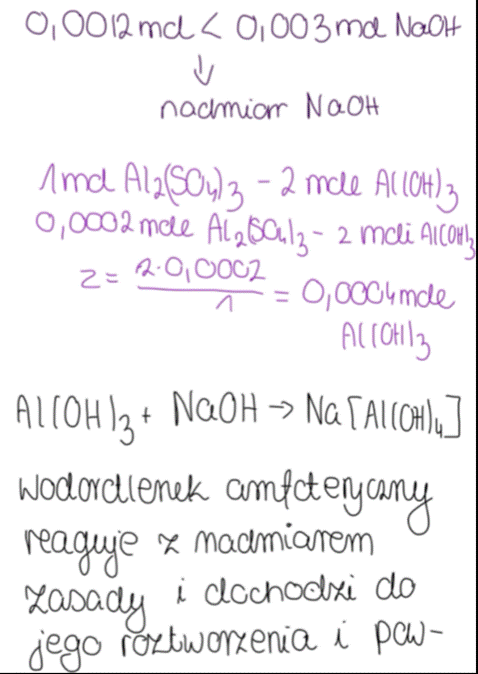 0,0012 mol < 0,003 mol NaOH
↓
nadmiar NaOH
1 mol Al₂(SO₄)₃ - 2 mole Al(OH)₃
0,0002 mole Al₂(SO₄)₃ - z moli Al(OH)₃
z = 2·0,0002 / 1 = 0,0004 mole
Al(OH)₃
Al(OH)₃ + NaOH → Na[Al(OH)₄]
wodorotlenek amfoteryczny
reaguje z nadmiarem
zasady i dochodzi do
jego roztworzenia i pow-